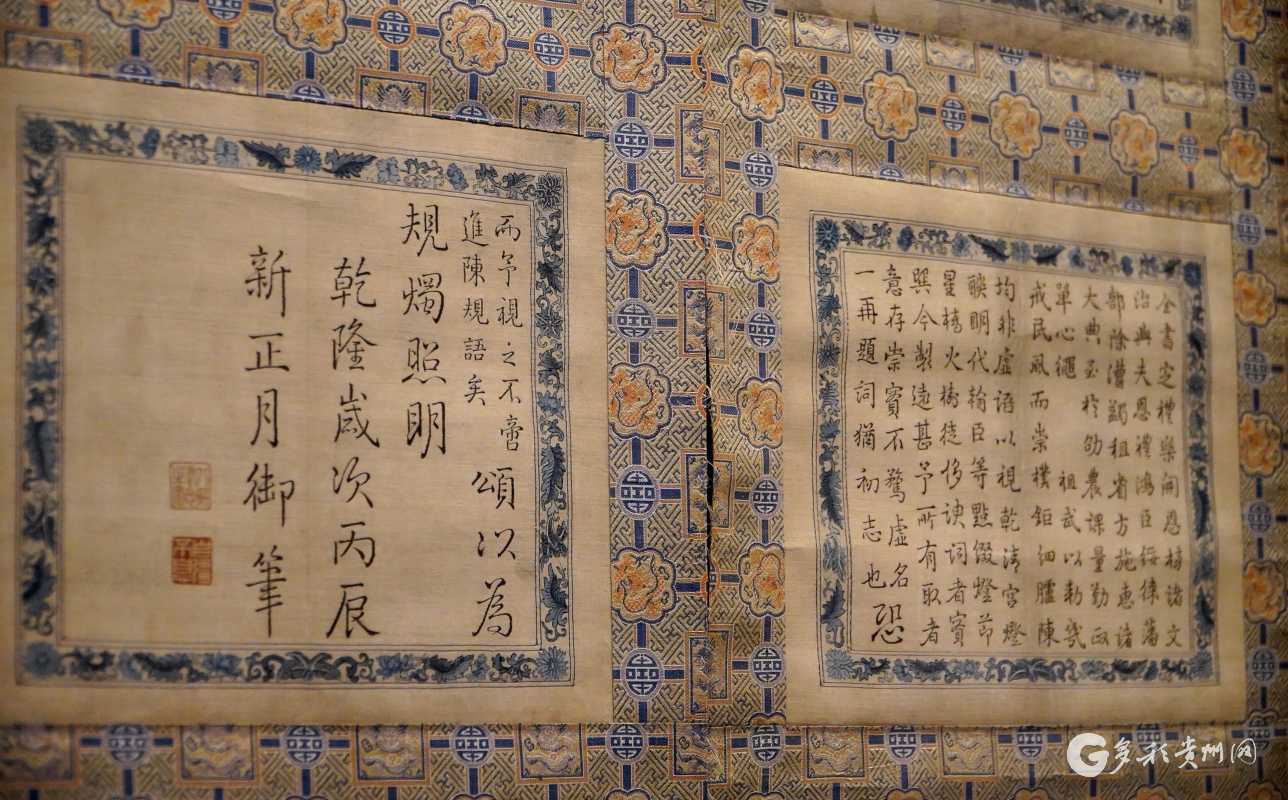 全書定禮樂開恩榜諮文
治典夫恩禮鴻臣綏徠藩
部除漕蠲租省方施惠諸
大典至於劭農課量勤政
單心繩祖武以勅幾
戒民風而崇樸鉅細臚陳
均非虛語以視乾清宮燈
聯明代翰臣等點綴燈節
星橋火樹徒侈諛詞者實
異今製遠甚予所有取者
意存崇實不騖虛名
一再題詞猶初志也
恐
而予視之不啻
進陳規語矣
頌以為
規燭照明
乾隆歲次丙辰
新正月御筆
多彩贵州网